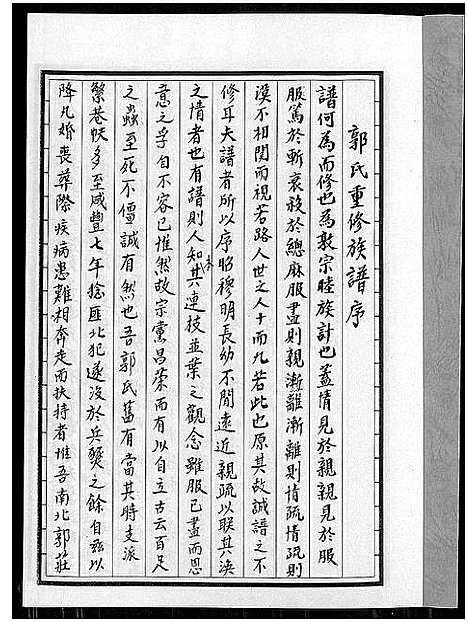 郭氏重修族譜序
譜何為而修也為敦宗睦族計也蓋情見於親親見於服
服篤於斬衰殺於緦麻服盡則親漸離漸離則情疏情疏則
漠不相関而視若路人世之人十而九若此也原其故誠譜之不
修耳夫譜者所以序昭穆明長幼不間遠近親疏以聯其渙
之情者也有譜則人知其本連枝並葉之觀念雖服已盡而恩
意之孚自不容已惟然故宗黨昌荣而有以自立古云百足
之蟲至死不僵誠有然也吾郭氏舊有當其時支派
繁卷帙多至咸豐七年捻匪北犯遂没於兵燹之餘自兹以
降凡婚喪葬際疾病患難相奔走而扶持者惟吾南北郭莊